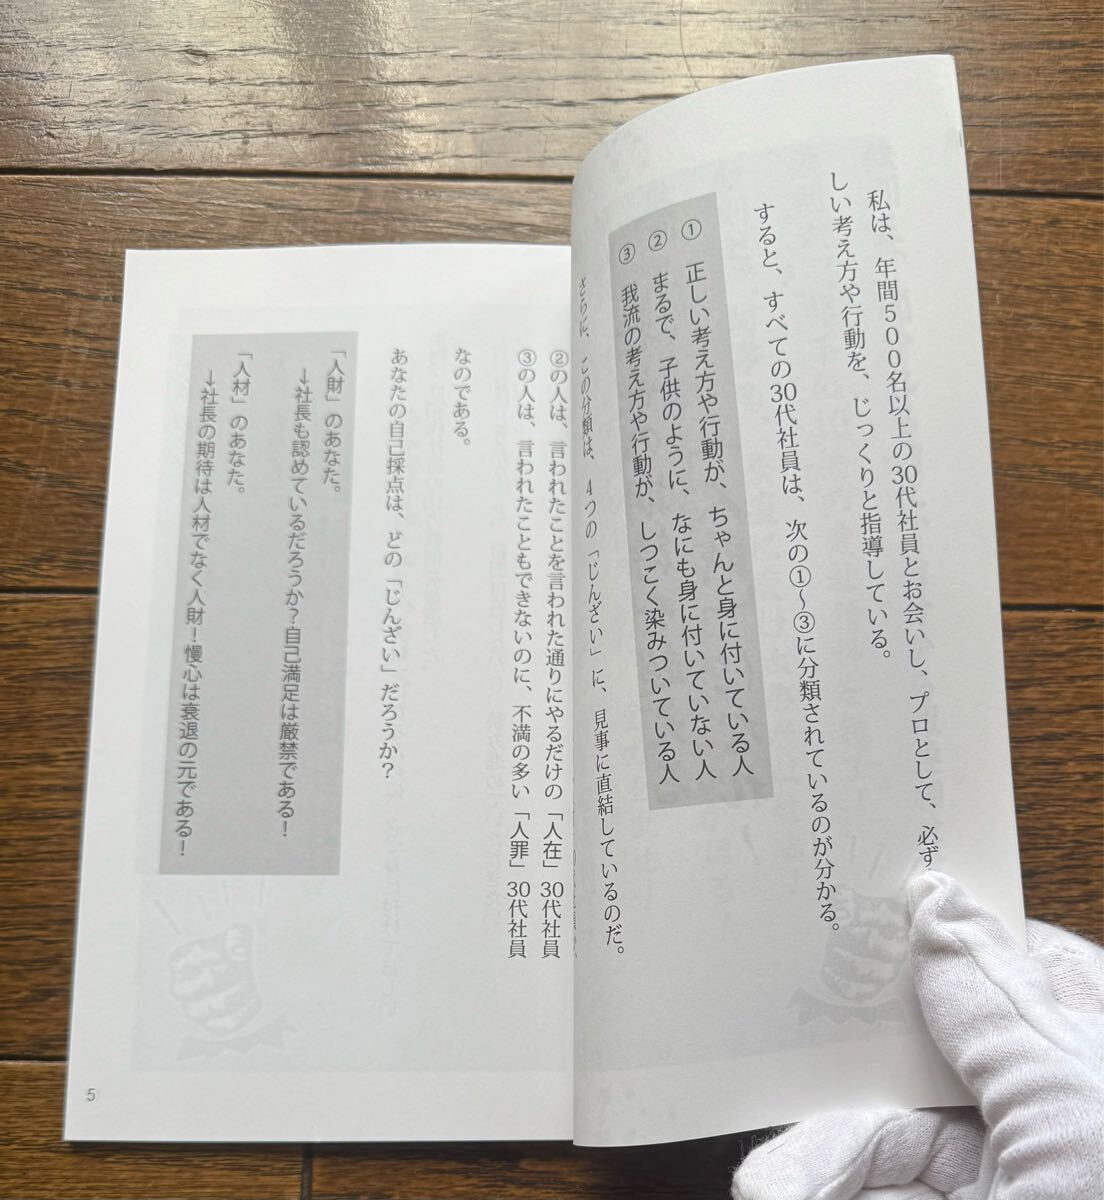 私は、年間５００名以上の30代社員とお会いし、プロとして、必ず
しい考え方や行動を、じっくりと指導している。
すると、すべての30代社員は、次の①〜③に分類されているのが分かる。
① 正しい考え方や行動が、ちゃんと身に付いている人
② まるで、子供のように、なにも身に付いていない人
③ 我流の考え方や行動が、しつこく染みついている人
さらに、この分類は、４つの「じんざい」に、見事に直結しているのだ。
②の人は、言われたことを言われた通りにやるだけの「人在」30代社員
③の人は、言われたこともできないのに、不満の多い「人罪」30代社員
なのである。
あなたの自己採点は、どの「じんざい」だろうか？
「人財」のあなた。
→社長も認めているだろうか？自己満足は厳禁である！
「人材」のあなた。
→社長の期待は人材でなく人財！慢心は衰退の元である！
5